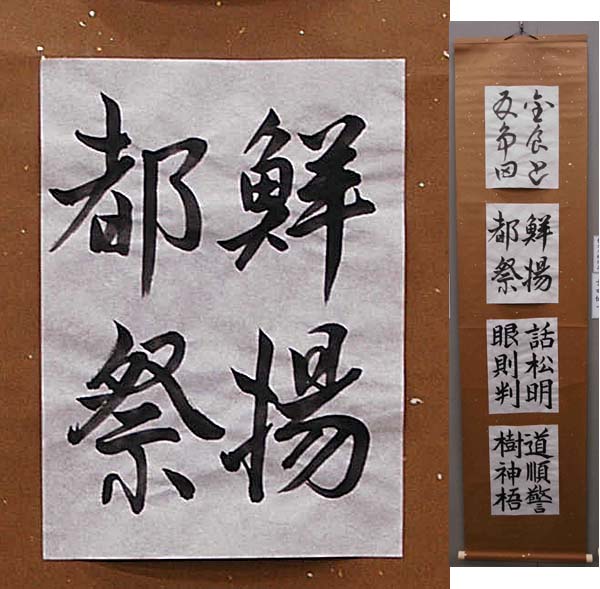 鮮揚
都祭
鮮揚
都祭
話松明
眼則判
道順警
樹神梧